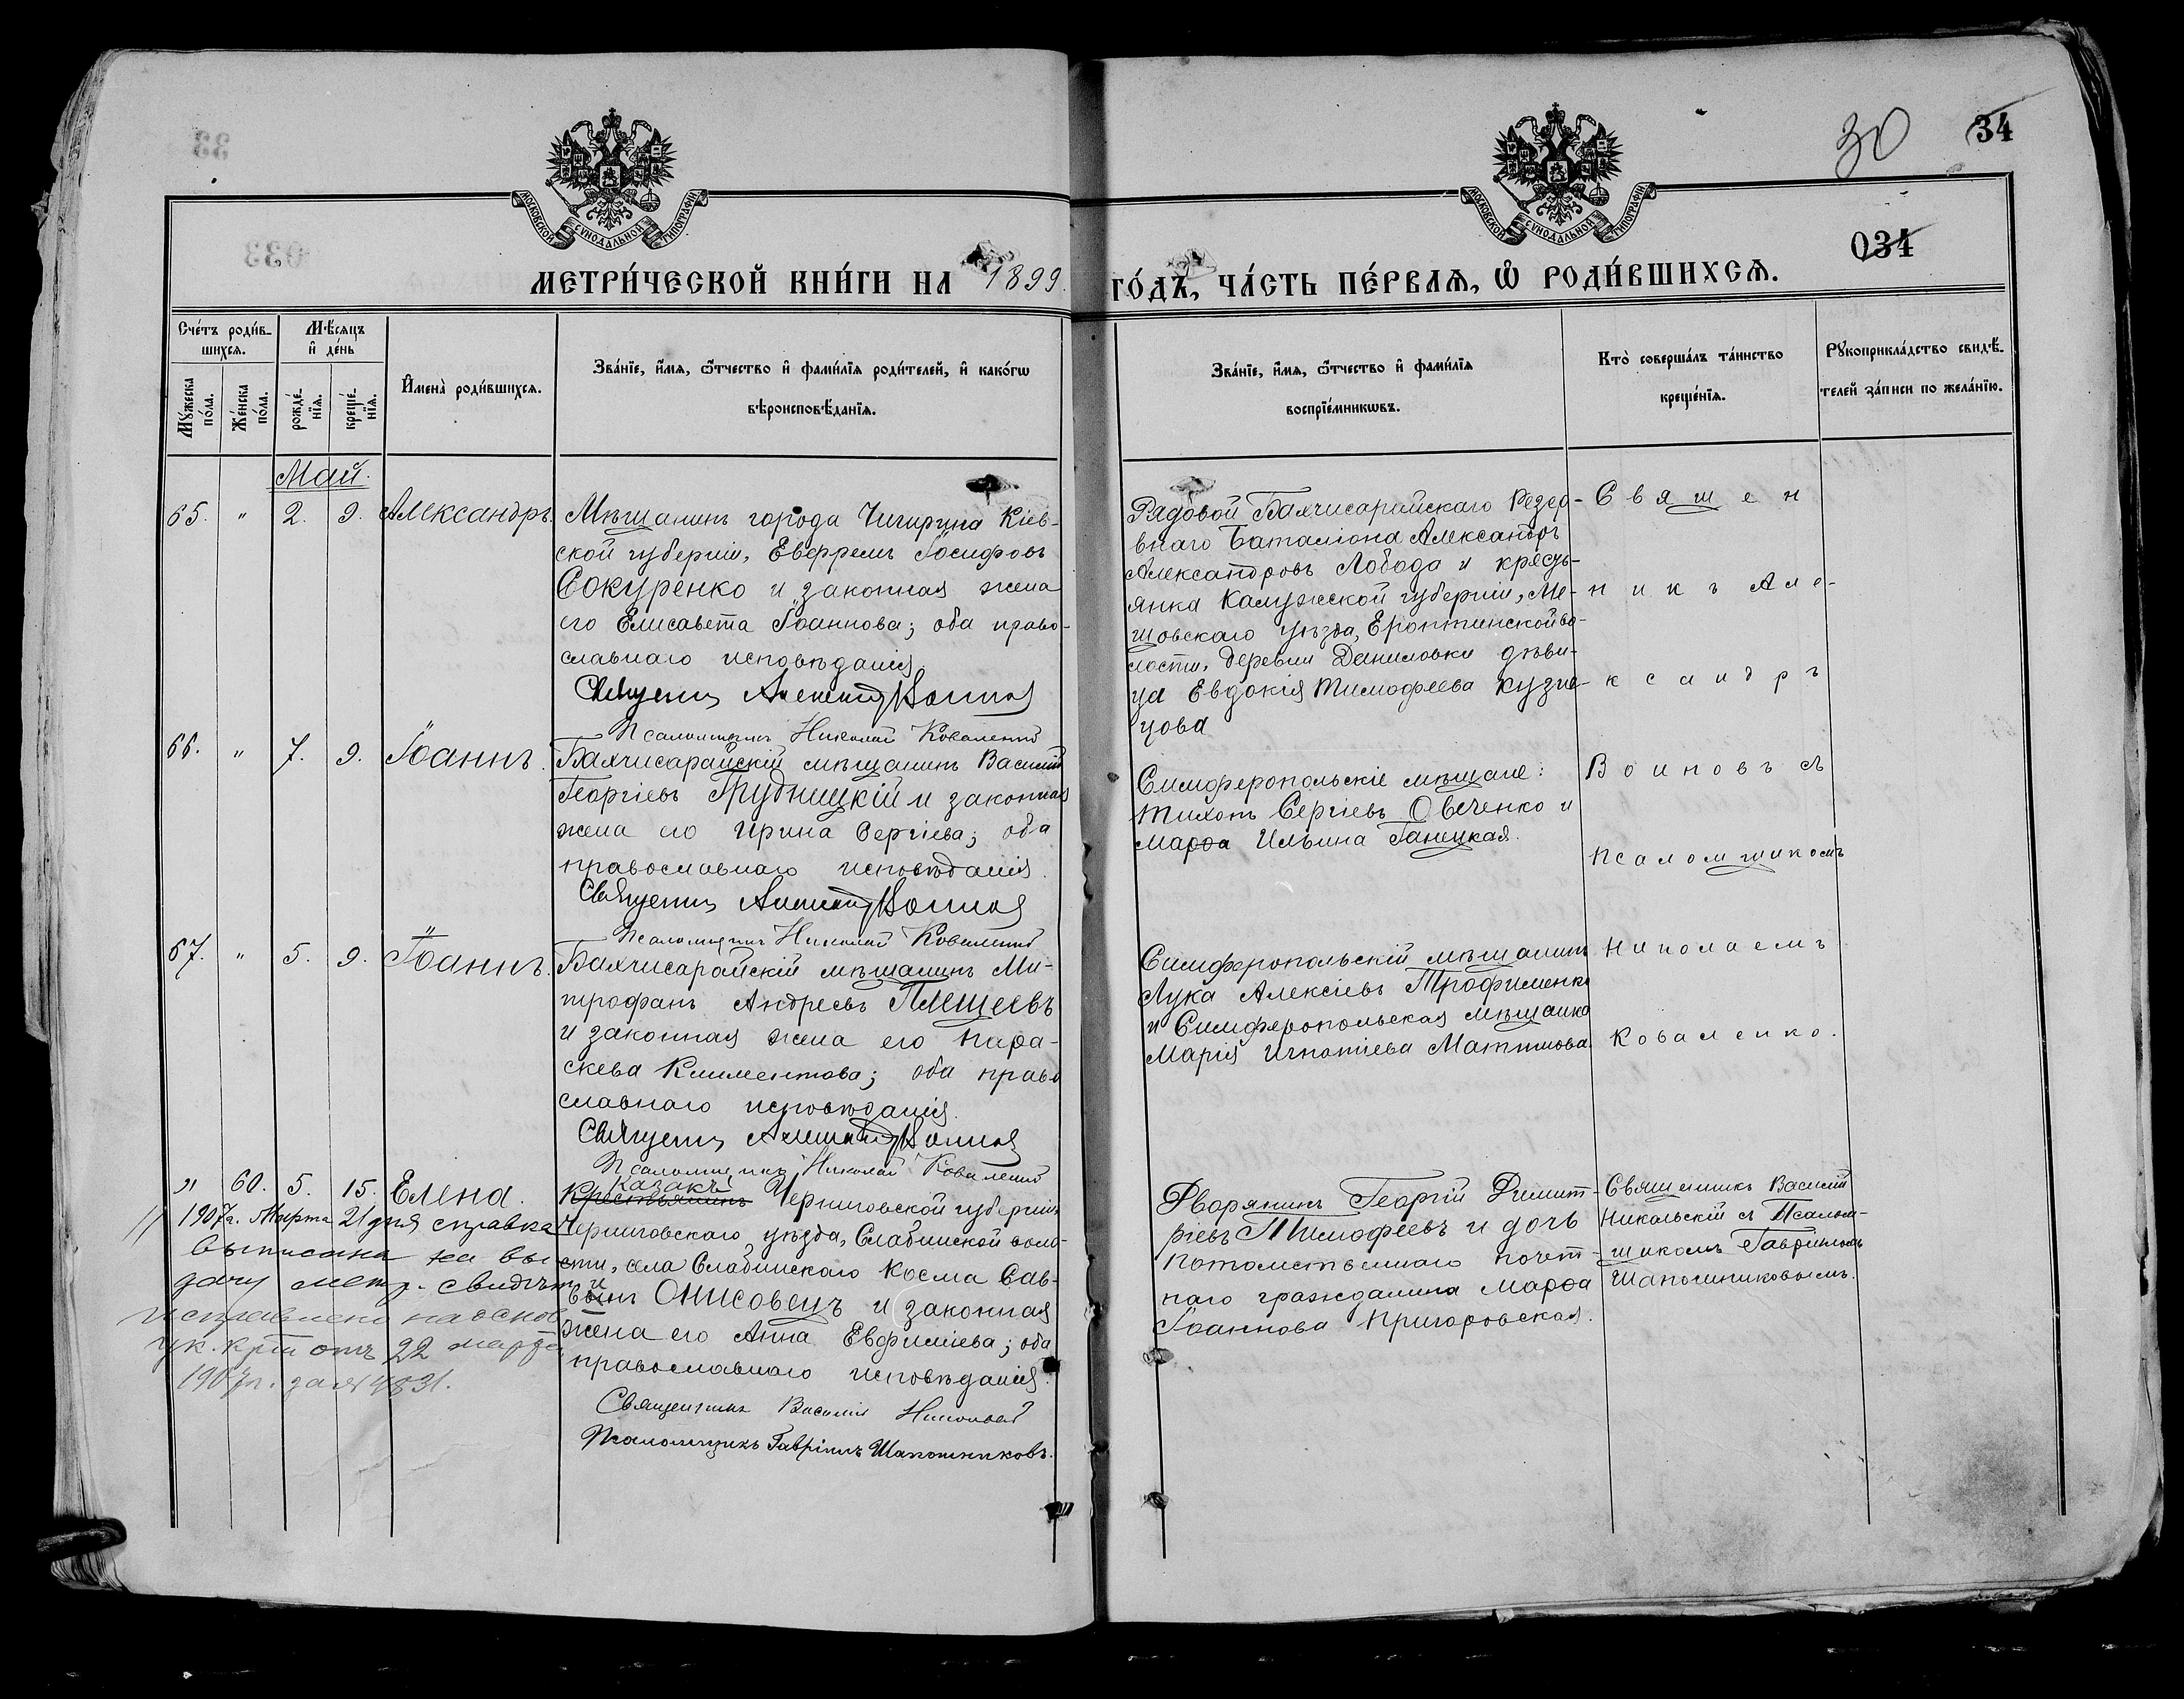 33
30
34
МОСКОВСКОЙ СѴНОДАЛЬНОЙ ТИПОГРАФІИ
МОСКОВСКОЙ СѴНОДАЛЬНОЙ ТИПОГРАФІИ
033
034
МЕТРИ́ЧЕСКОЙ КНИ́ГИ НА 1899.
ГО́ДЪ, ЧА́СТЬ ПЕ́РВАѦ, Ѽ РОДИ́ВШИХСѦ.
Сче́тъ роди́в-
шихсѧ.
Мѣ́сѧцъ
и҆ де́нь
Мꙋ́жеска
по́ла.
Же́нска
по́ла.
рожде́-
нїѧ.
креще́-
нїѧ.
И҆мена̀ роди́вшихсѧ.
Зва́нїе, и҆́мѧ, ѻ҆́тчество и҆ фами́лїѧ роди́телей, и҆ како́гѡ
вѣроисповѣ́данїѧ.
Зва́нїе, и҆́мѧ, ѻ҆́тчество и҆ фами́лїѧ
воспрїе́мникѡвъ.
Кто̀ соверша́лъ та́инство
креще́нїѧ.
Рꙋкоприкла́дство свидѣ́-
телей за́писи по жела́нїю.
Май.
65. " 2. 9. Александръ.
Мѣщанинъ города Чигирина Кіев-
ской губерніи, Евфремъ Іосифовъ
Сокуренко и законная жена
его Елисавета Іоаннова; оба право-
славнаго исповѣданія.
Священ. Александръ Воиновъ
Псаломщикъ Николай Коваленко
Рядовой Бахчисарайскаго Резер-
внаго Баталіона Александръ
Александровъ Лобода и кресть-
янка Калужской губерніи, Ме-
щовскаго уѣзда, Еропкинской во-
лости, деревни Даниловки дѣви-
ца Евдокія Тимофеева Кузне-
цова
Священ
никъ Але-
ксандръ
Воиновъ съ
псаломщикомъ
Николаемъ
Коваленко.
66. " 7. 9. Іоаннъ.
Бахчисарайскій мѣщанинъ Василій
Георгіевъ Грудницкій и законная
жена его Ирина Сергіева; оба
православнаго исповѣданія.
Священ. Александръ Воиновъ
Псаломщикъ Николай Коваленко
Симферопольскіе мѣщане:
Тихонъ Сергіевъ Овеченко и
Марѳа Ильина Ганицкая.
67. " 5. 9. Іоаннъ.
Бахчисарайскій мѣщанинъ Ми-
трофанъ Андреевъ Плещеевъ
и законная жена его Пара-
скева Климентова; оба право
славнаго исповѣданія.
Священ. Александръ Воиновъ
Псаломщикъ Николай Коваленко
Симферопольскій мѣщанинъ
Лука Алексіевъ Трофименко
и Симферопольская мѣщанка
Марія Игнатіева
" 60. 5. 15. Елена.
Казакъ
Крестьянинъ Черниговской губерніи
Черниговскаго уѣзда, Слабинской воло-
сти, села Слабинскаго Косма Сав-
винъ Онисовецъ и законная
жена его Анна Евфиміева; оба
православнаго исповѣданія.
Священникъ Василій Никольскій
Псаломщикъ Гавріилъ Шапошниковъ.
Дворянинъ Георгій Димит-
ріевъ Тимофеевъ и дочь
потомственнаго почет-
наго гражданина Марѳа
Іоаннова Пригоровская.
Священникъ Василій
Никольскій съ Псалом-
щикомъ Гавріиломъ
Шапошниковымъ.
1907 г. Марта 21 дня справка
выписана на вы-
дачу метр. свидѣт.
исправлено на основ
ук. Крти отъ 22 марта
1907 г. за № 4831.